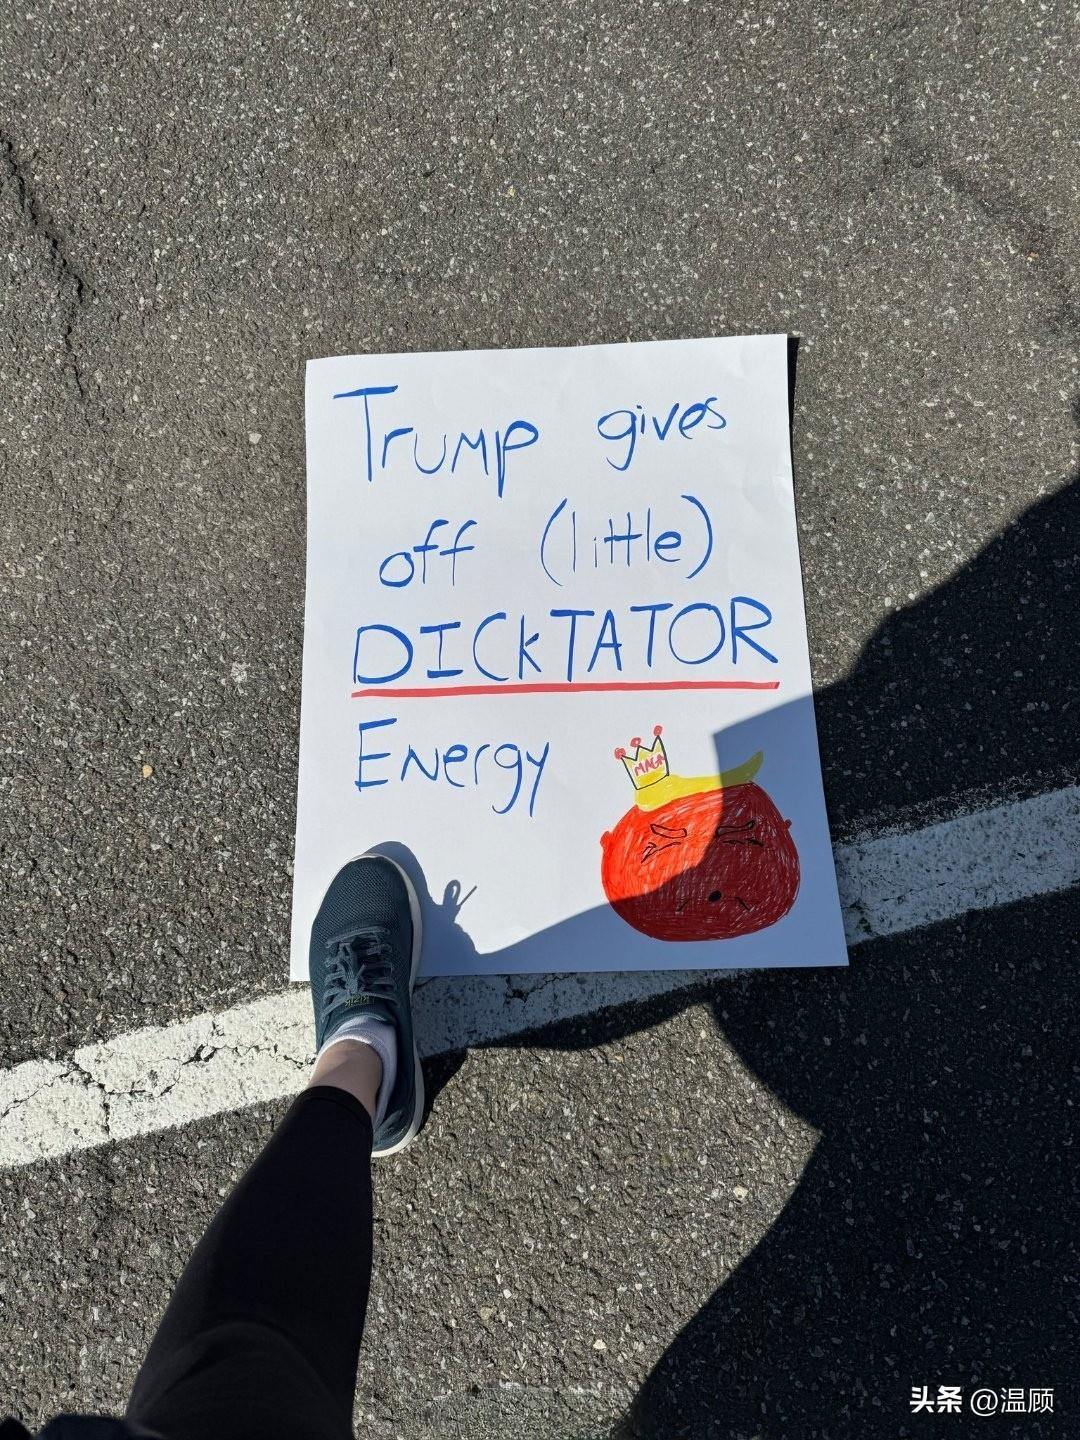 Trump gives
off (little)
DICKTATOR
Energy
MAGA
头条 @温顾